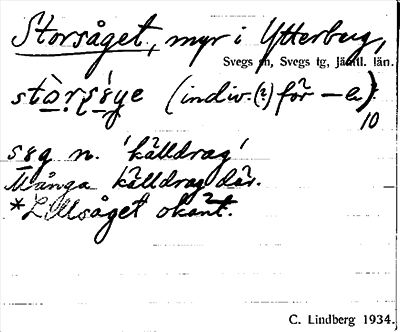 Storsåget, myr i Ytterberg,
Svegs sn, Svegs tg, Jämtl. län.
(indiv.(?) för – e).
10
n. 'källdrag'
Många källdrag där.
*Lillsåget okänt.
C. Lindberg 1934.